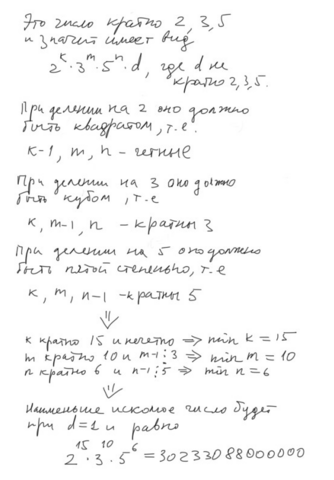 Это число кратно 2, 3, 5
и значит имеет вид
2^k · 3^m · 5^n · d, где d не
кратно 2, 3, 5.
При делении на 2 оно должно
быть квадратом, т.е.
k-1, m, n - четные
При делении на 3 оно должно
быть кубом, т.е
k, m-1, n - кратны 3
При делении на 5 оно должно
быть пятой степенью, т.е
k, m, n-1 - кратны 5
⇓
k кратно 15 и нечетно ⇒ min k = 15
m кратно 10 и m-1⋮3 ⇒ min m = 10
n кратно 6 и n-1⋮5 ⇒ min n = 6
⇓
Наименьше искомое число будет
при d=1 и равно
2^15 · 3^10 · 5^6 = 30233088000000